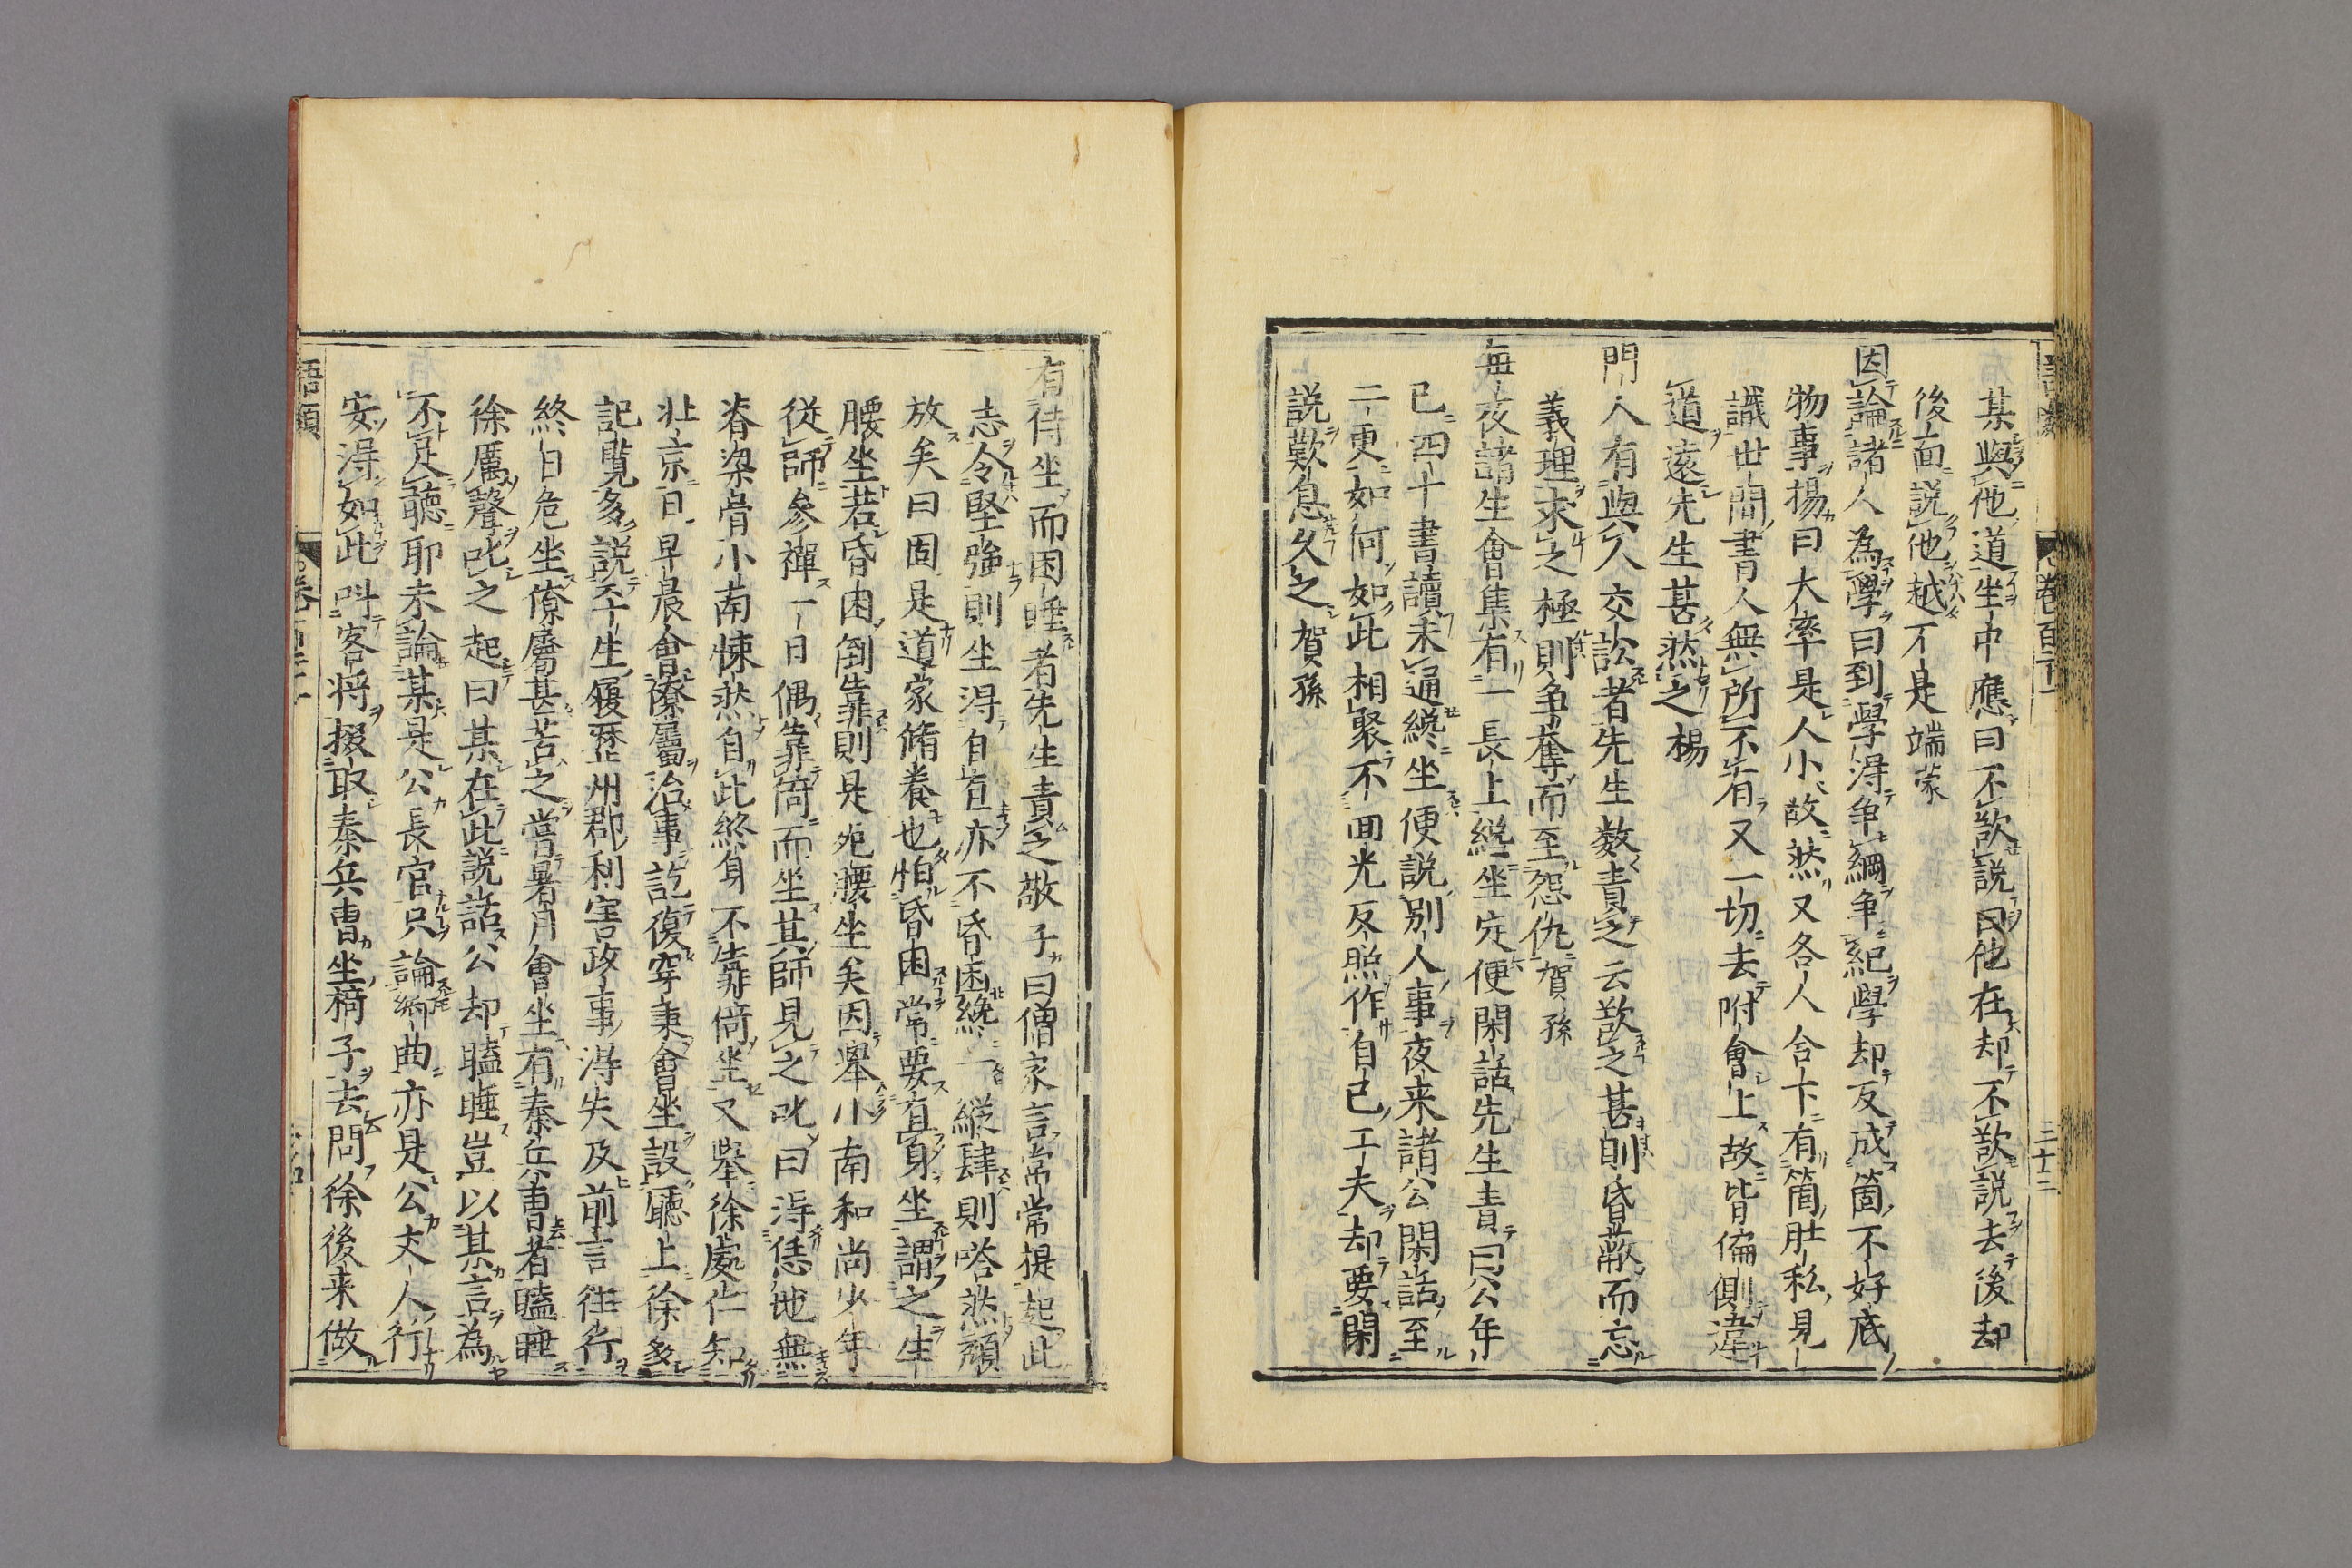 語類 卷百廿一 三十二
某與他道坐中應曰不欲說曰他在却不欲說去後却
後面說他越不是端蒙
因論諸人為學曰到學得争綱争紀學却反成箇不好底
物事揚曰大率是人小故然又各人合下有箇肚私見
識世間書人無所不有又一切去附會上故皆偏側違
道遠先生甚然之楊
門人有與人交訟者先生數責之云欲之甚則昏蔽而忘
義理求之極則争奪而至怨仇賀孫
每夜諸生會集有一長上纔坐定便閑話先生責曰公年
已四十書讀未通纔坐便說別人事夜来諸公閑話至
二更如何如此相聚不回光反照作自己工夫却要閑
說歎息久之賀孫
有侍坐而困睡者先生責之敬子曰僧家言常常提起此
志令堅強則坐得自直亦不昏困纔一縱肆則嗒然頹
放矣曰固是道家脩養也怕昏困常要直身坐謂之生
腰坐若昏困倒靠則是死腰坐矣因舉小南和尚少年
從師參禪一日偶靠倚而坐其師見之叱曰得恁地無
脊梁骨小南悚然自此終身不靠倚坐又舉徐處仁知
北京日早晨會僚屬治事訖復穿秉會坐設廳上徐多
記覽多說平生履歷州郡利害政事得失及前言徃行
終日危坐僚屬甚苦之嘗暑月會坐有秦兵曹者瞌睡
徐厲聲叱之起曰某在此說話公却瞌睡豈以某言為
不足聽耶未論某是公長官只論鄉曲亦是公丈人行
安得如此叫客將掇取秦兵曹坐椅子去問徐後来做
語類 卷